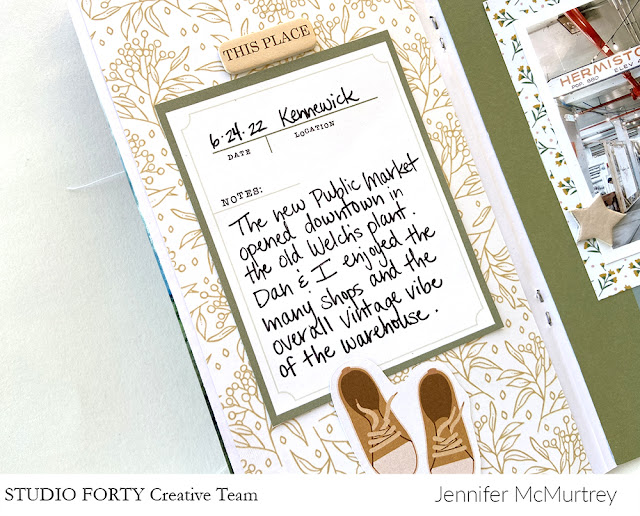 THIS PLACE
6.24.22 Kennewick
DATE LOCATION
NOTES:
The new Public Market
opened downtown in
the old Welch's plant.
Dan & I enjoyed the
many shops and the
overall vintage vibe
of the warehouse.
HERMISTO
POP. 660 ELEV
STUDIO FORTY Creative Team
Jennifer McMurtrey